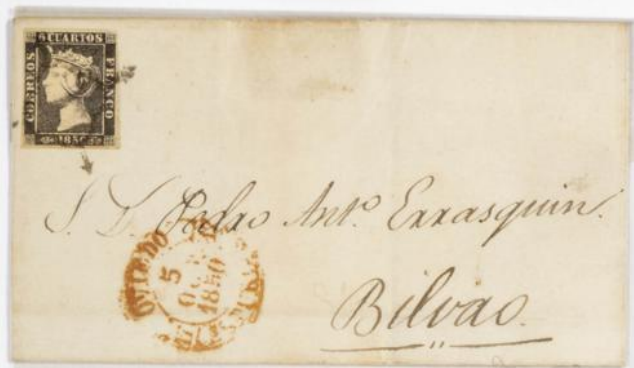 6 CUARTOS
CORREOS
FRANCO
1850
S. D. Pedro Antº Errasquin.
OVIEDO
5
OC
1850
Bilvao.